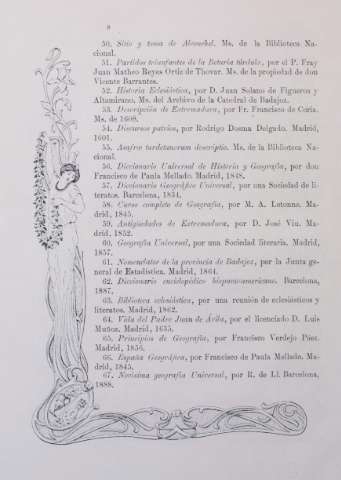 8
50. Sitio y toma de Alconchel. Ms. de la Biblioteca Na-
cional.
51. Partidos triunfantes de la Beturia túrdula, por el P. Fray
Juan Matheo Reyes Ortiz de Thovar. Ms. de la propiedad de don
Vicente Barrantes.
52. Historia Eclesiástica, por D. Juan Solano de Figueroa y
Altamirano. Ms. del Archivo de la Catedral de Badajoz.
53. Descripción de Extremadura, por Fr. Francisco de Coria.
Ms. de 1608.
54. Discursos patrios, por Rodrigo Dosma Delgado. Madrid,
1601.
55. turdetanorum descriptio. Ms. de la Biblioteca Na-
cional.
56. Diccionario Universal de Historia y Geografía, por don
Francisco de Paula Mellado. Madrid, 1848.
57. Diccionario Geográfico Universal, por una Sociedad de li-
teratos. Barcelona, 1834.
58. Curso completo de Geografía, por M. A. Letonne. Ma-
drid, 1845.
59. Antigüedades de Extremadura, por D. José Viu. Ma-
drid, 1852.
60. Geografía Universal, por una Sociedad literaria. Madrid,
1857.
61. Nomenclator de la provincia de Badajoz, por la Junta ge-
neral de Estadística. Madrid, 1864.
62. Diccionario enciclopédico hispano-americano. Barcelona,
1887.
63. Biblioteca eclesiástica, por una reunión de eclesiásticos y
literatos. Madrid, 1862.
64. Vida del Padre Juan de Avila, por el licenciado D. Luis
Muñoz. Madrid, 1635.
65. Principios de Geografía, por Francisco Verdejo Páez.
Madrid, 1856.
66. España Geográfica, por Francisco de Paula Mellado. Ma-
drid, 1845.
67. Novísima geografía Universal, por R. de Ll. Barcelona,
1888.